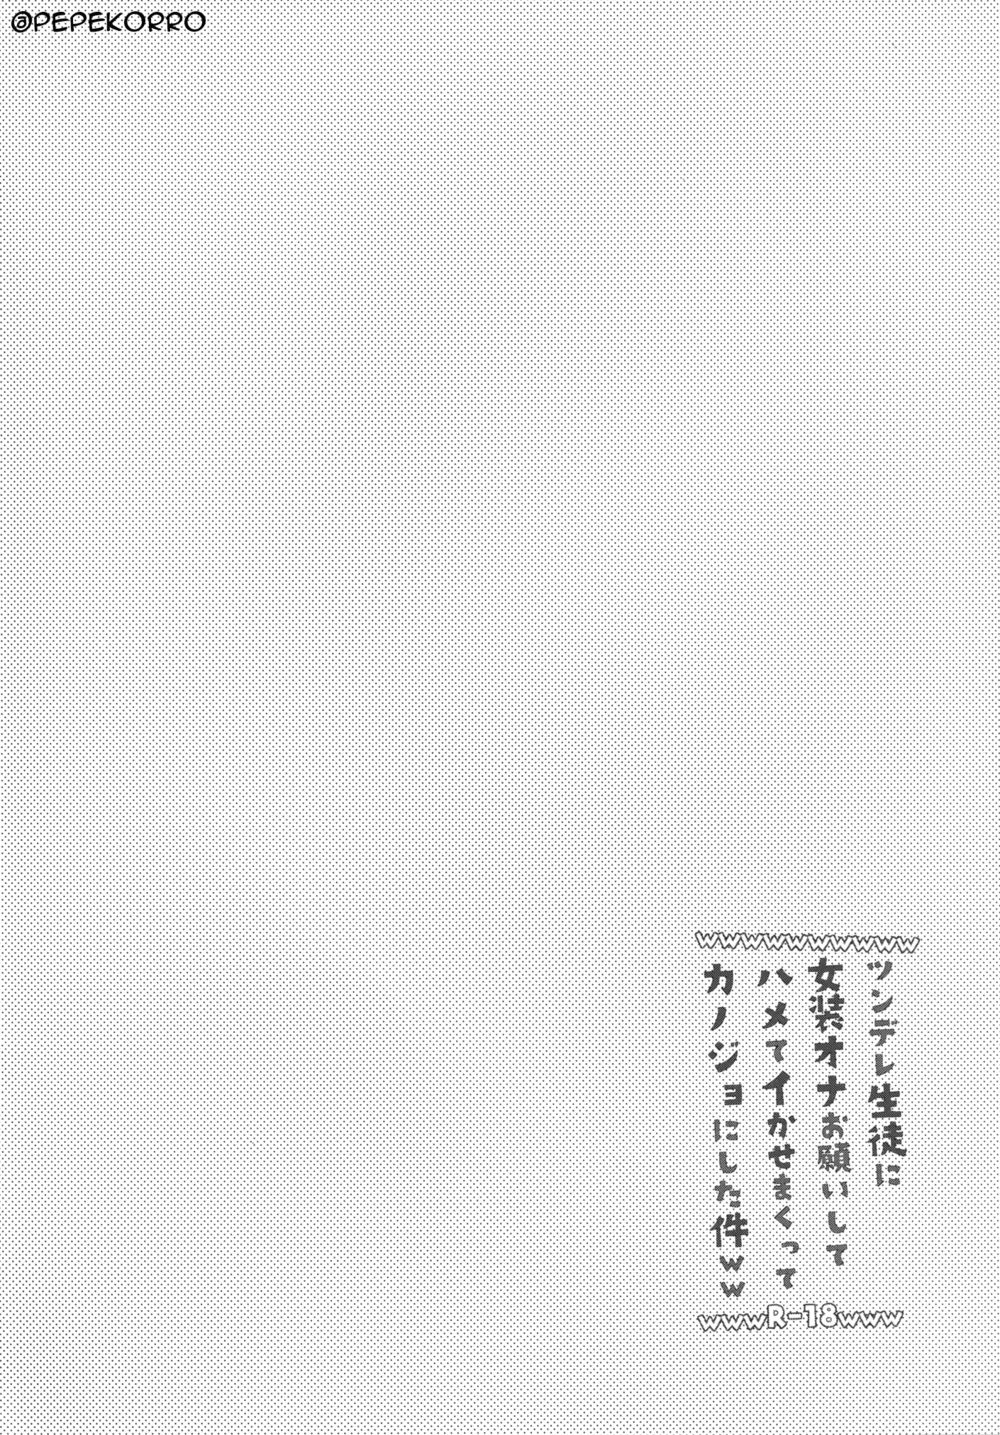 @PEPEKORRO
wwwwwwwwww
ツンデレ生徒に
女装オナお願いして
ハメてイかせまくって
カノジョにした件ww
wwwR-18www